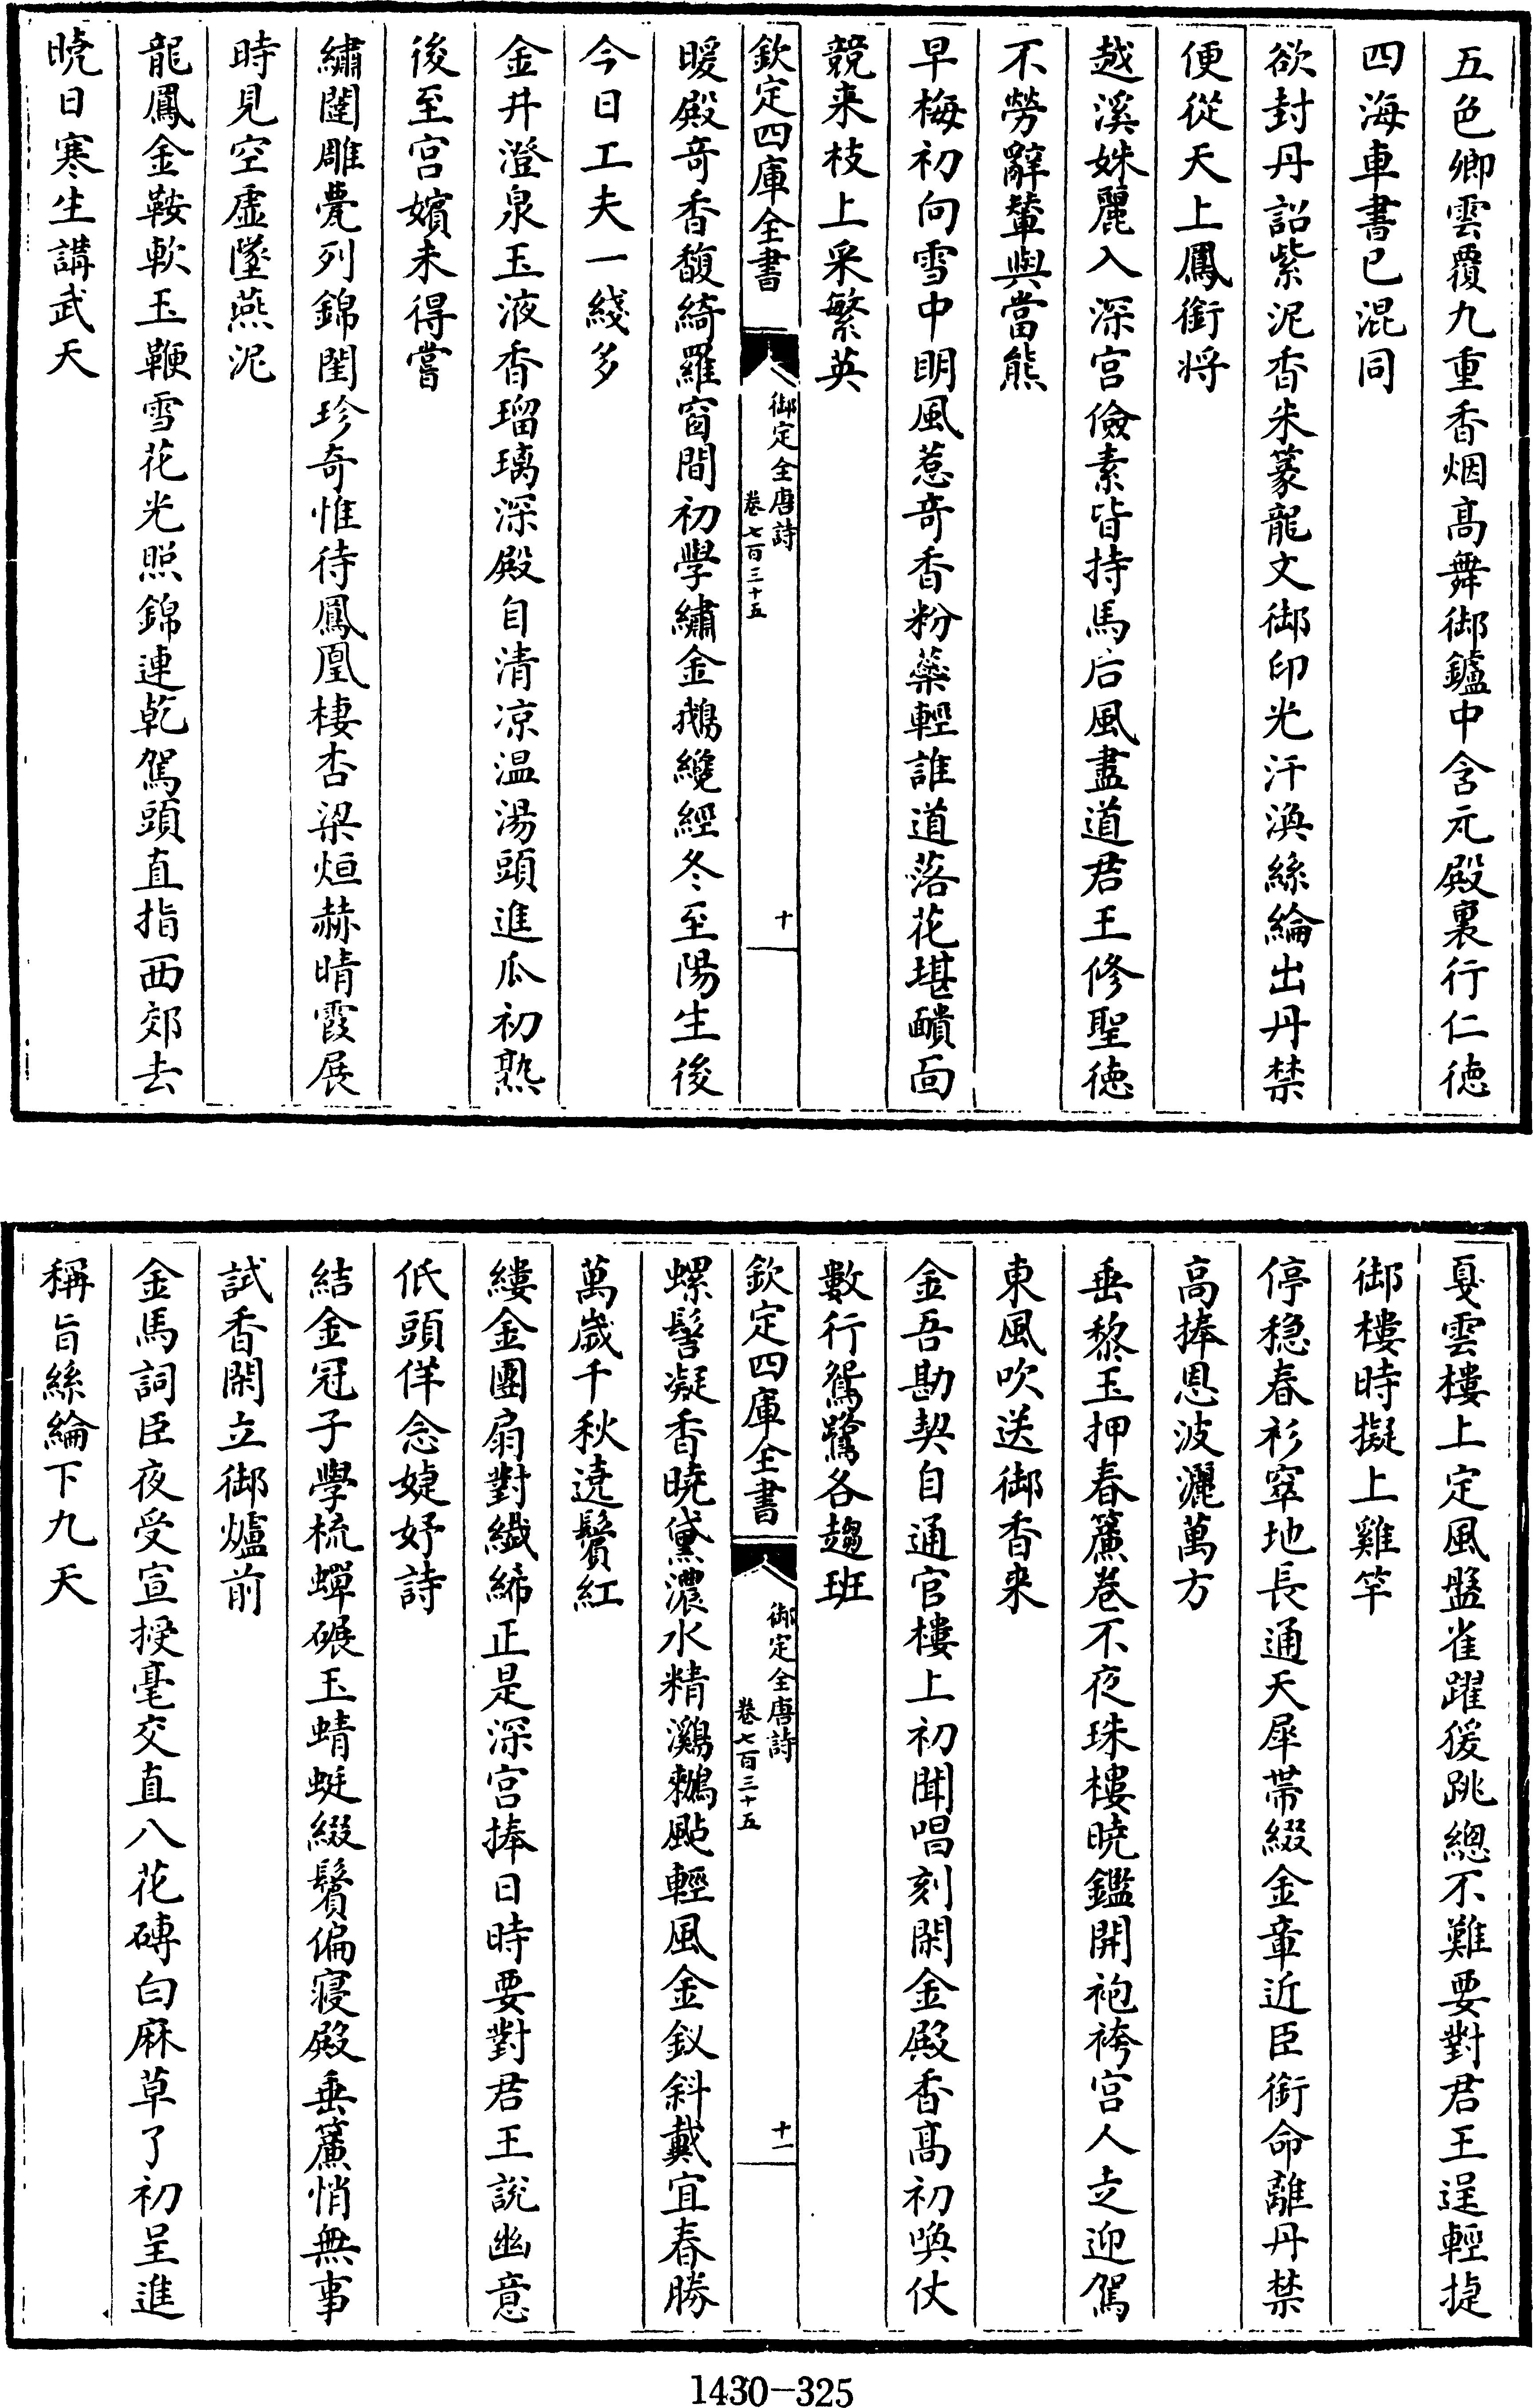 五色卿雲覆九重香烟高舞御鑪中含元殿裏行仁徳
四海車書已混同
欲封丹詔紫泥香朱篆龍文御印光汗渙絲綸出丹禁
便從天上鳳銜将
越溪姝麗入深宫儉素皆持馬后風盡道君王修聖徳
不勞辭輦與當熊
早梅初向雪中明風惹奇香粉蘂輕誰道落花堪靧面
競来枝上采繁英
欽定四庫全書
御定全唐詩
卷七百三十五
十
暖殿奇香馥綺羅窗間初學繡金鵝纔經冬至陽生後
今日工夫一綫多
金井澄泉玉液香瑠璃深殿自清凉温湯頭進瓜初熟
後至宫嬪未得嘗
繡闥雕甍列錦閨珍奇惟待鳳凰棲杏梁烜赫晴霞展
時見空虛墜燕泥
龍鳳金鞍軟玉鞭雪花光照錦連乾駕頭直指西郊去
曉日寒生講武天
戛雲樓上定風盤雀躍猨跳總不難要對君王逞輕捷
御樓時擬上雞竿
停穏春衫窣地長通天犀帶綴金章近臣銜命離丹禁
高捧恩波灑萬方
垂黎玉押春簾卷不夜珠樓曉鑑開袍袴宫人走迎駕
東風吹送御香来
金吾勘契自通官樓上初聞唱刻閑金殿香高初喚仗
數行鴛鷺各趨班
欽定四庫全書
御定全唐詩
卷七百三十五
十一
螺髻凝香曉黛濃水精鸂鶒颭輕風金釵斜戴宜春勝
萬歲千秋遶鬢紅
縷金團扇對纎絺正是深宫捧日時要對君王說幽意
低頭佯念婕妤詩
結金冠子學梳蟬碾玉蜻蜓綴鬢偏寢殿垂簾悄無事
試香閑立御爐前
金馬詞臣夜受宣授毫交直八花磚白麻草了初呈進
稱旨絲綸下九天
1430-325